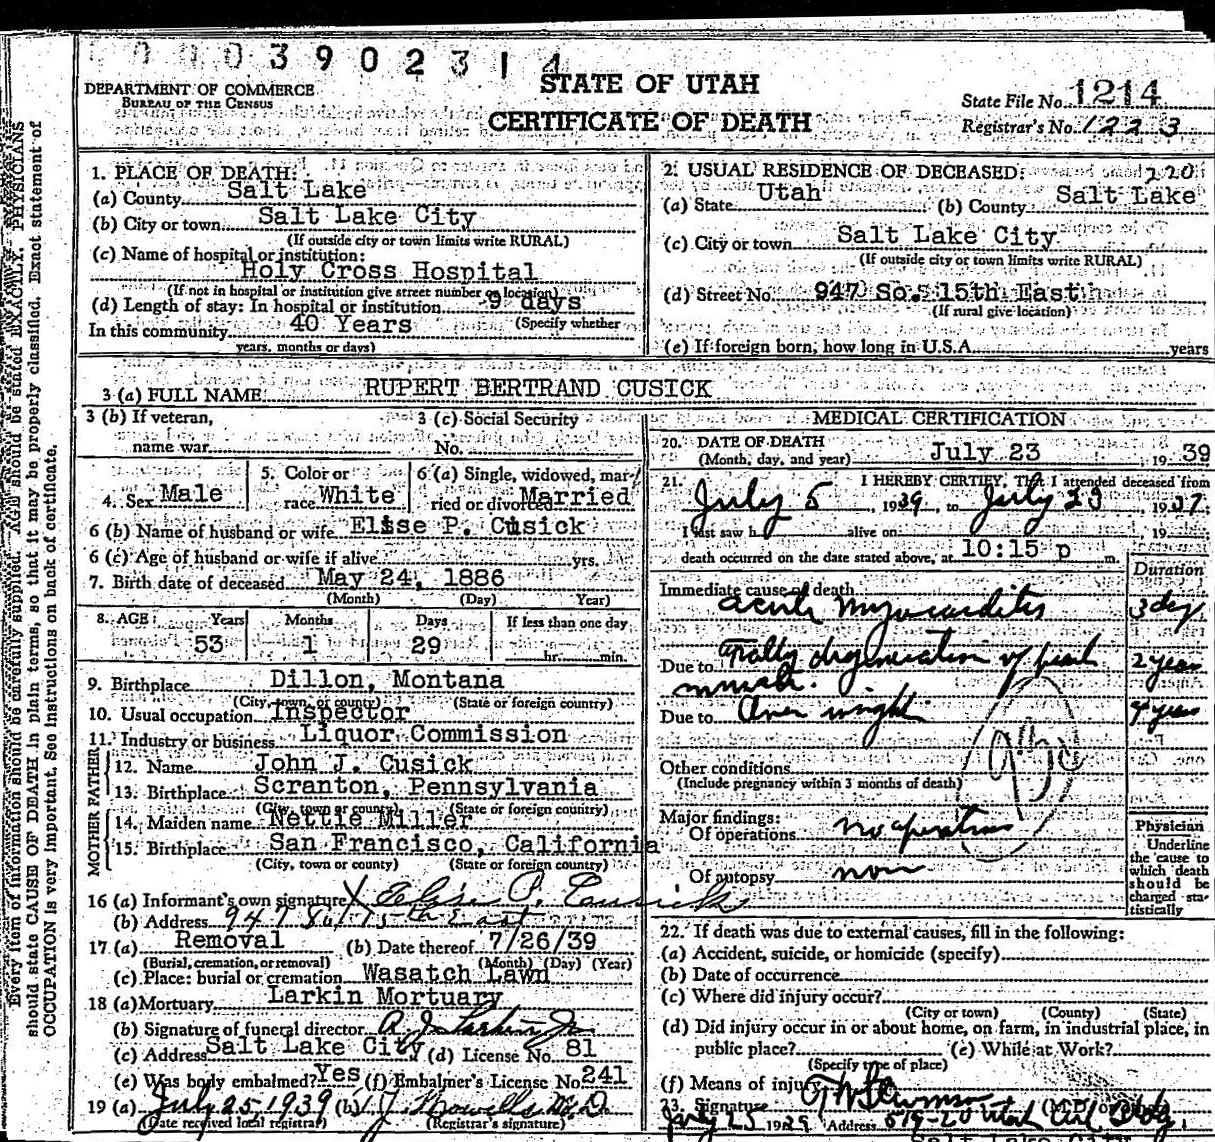 0 0 0 3 9 0 2 3 1 4
DEPARTMENT OF COMMERCE
BUREAU OF THE CENSUS
STATE OF UTAH
CERTIFICATE OF DEATH
State File No. 1214
Registrar's No. 1223
1. PLACE OF DEATH:
(a) County Salt Lake
(b) City or town Salt Lake City
(If outside city or town limits write RURAL)
(c) Name of hospital or institution:
Holy Cross Hospital
(If not in hospital or institution give street number or location)
(d) Length of stay: In hospital or institution 9 days
In this community 40 Years (Specify whether
years, months or days)
2. USUAL RESIDENCE OF DECEASED: 220
(a) State Utah (b) County Salt Lake
(c) City or town Salt Lake City
(If outside city or town limits write RURAL)
(d) Street No. 947 So. 15th East
(If rural give location)
(e) If foreign born, how long in U.S.A. years
3 (a) FULL NAME RUPERT BERTRAND CUSICK
3 (b) If veteran,
name war
3 (c) Social Security
No.
4. Sex Male
5. Color or
race White
6 (a) Single, widowed, mar-
ried or divorced Married
6 (b) Name of husband or wife Elise P. Cusick
6 (c) Age of husband or wife if alive yrs.
7. Birth date of deceased May 24, 1886
(Month) (Day) Year)
8. AGE: Years Months Days If less than one day
53 1 29 hr. min.
9. Birthplace Dillon, Montana
(City, town, or county) (State or foreign country)
10. Usual occupation Inspector
11. Industry or business Liquor Commission
FATHER
12. Name John J. Cusick
13. Birthplace Scranton, Pennsylvania
(City, town or county) (State or foreign country)
MOTHER
14. Maiden name Nettie Miller
15. Birthplace San Francisco, California
(City, town or county) (State or foreign country)
16 (a) Informant's own signature X Elise P. Cusick
(b) Address 947 So. 15th East
17 (a) Removal (b) Date thereof 7/26/39
(Burial, cremation, or removal) (Month) (Day) (Year)
(c) Place: burial or cremation Wasatch Lawn
18 (a) Mortuary Larkin Mortuary
(b) Signature of funeral director A. J. Larkin Jr
(c) Address Salt Lake City (d) License No. 81
(e) Was body embalmed? Yes (f) Embalmer's License No. 241
19 (a) July 25, 1939 (b) J. Howells M.D.
(Date received local registrar) (Registrar's signature)
MEDICAL CERTIFICATION
20. DATE OF DEATH
(Month, day, and year) July 23, 19 39
21. I HEREBY CERTIFY, That I attended deceased from
July 5, 1939, to July 23, 1937:
I last saw h alive on , 19
death occurred on the date stated above, at 10:15 p m.
Duration
Immediate cause of death
acute myocarditis 3 day
Due to Fatty degeneration of heart 2 years
muscle.
Due to Over weight 4 years
93c
Other conditions
(Include pregnancy within 3 months of death)
Major findings:
Of operations no operation
Of autopsy non
Physician
Underline
the cause to
which death
should be
charged sta-
tistically
22. If death was due to external causes, fill in the following:
(a) Accident, suicide, or homicide (specify)
(b) Date of occurrence
(c) Where did injury occur?
(City or town) (County) (State)
(d) Did injury occur in or about home, on farm, in industrial place, in
public place? (e) While at Work?
(Specify type of place)
(f) Means of injury
23. Signature
July 25 1939 Address 519-20 Utah
Salt Lake City
Every item of information should be carefully supplied. AGE should be stated EXACTLY. PHYSICIANS
should state CAUSE OF DEATH in plain terms, so that it may be properly classified. Exact statement of
OCCUPATION is very important. See instructions on back of certificate.